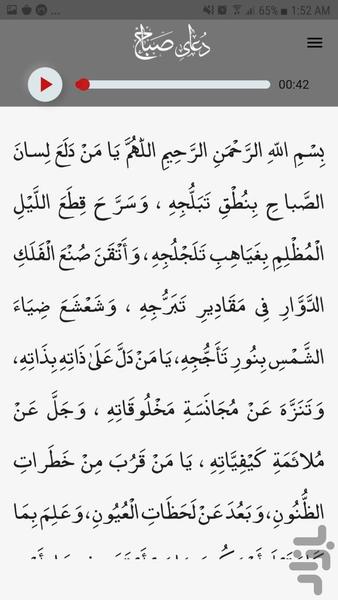 65% 1:52 AM
دعای صباح
00:42
بِسْمِ اللهِ الرَّحْمَنِ الرَّحِيمِ اللهُمَّ يَا مَنْ دَلَعَ لِسانَ
الصَّباحِ بِنُطْقِ تَبَلُّجِهِ ، وَسَرَّحَ قِطَعَ اللَّيْلِ
الْمُظْلِمِ بِغَيَاهِبِ تَلَجْلُجِهِ، وَأَتْقَنَ صُنْعَ الْفَلَكِ
الدَّوَّارِ فِي مَقَادِيرِ تَبَرُّجِهِ ، وَشَعْشَعَ ضِيَاءَ
الشَّمْسِ بِنُورِ تَأَجُّجِهِ، يَا مَنْ دَلَّ عَلَىٰ ذَاتِهِ بِذَاتِهِ،
وَتَنَزَّهَ عَنْ مُجَانَسَةِ مَخْلُوقَاتِهِ ، وَجَلَّ عَنْ
مُلائَمَةِ كَيْفِيَّاتِهِ ، يَا مَنْ قَرُبَ مِنْ خَطَراتِ
الظُّنُونِ، وَبَعُدَ عَنْ لَحَظَاتِ الْعُيُونِ، وَعَلِمَ بِمَا